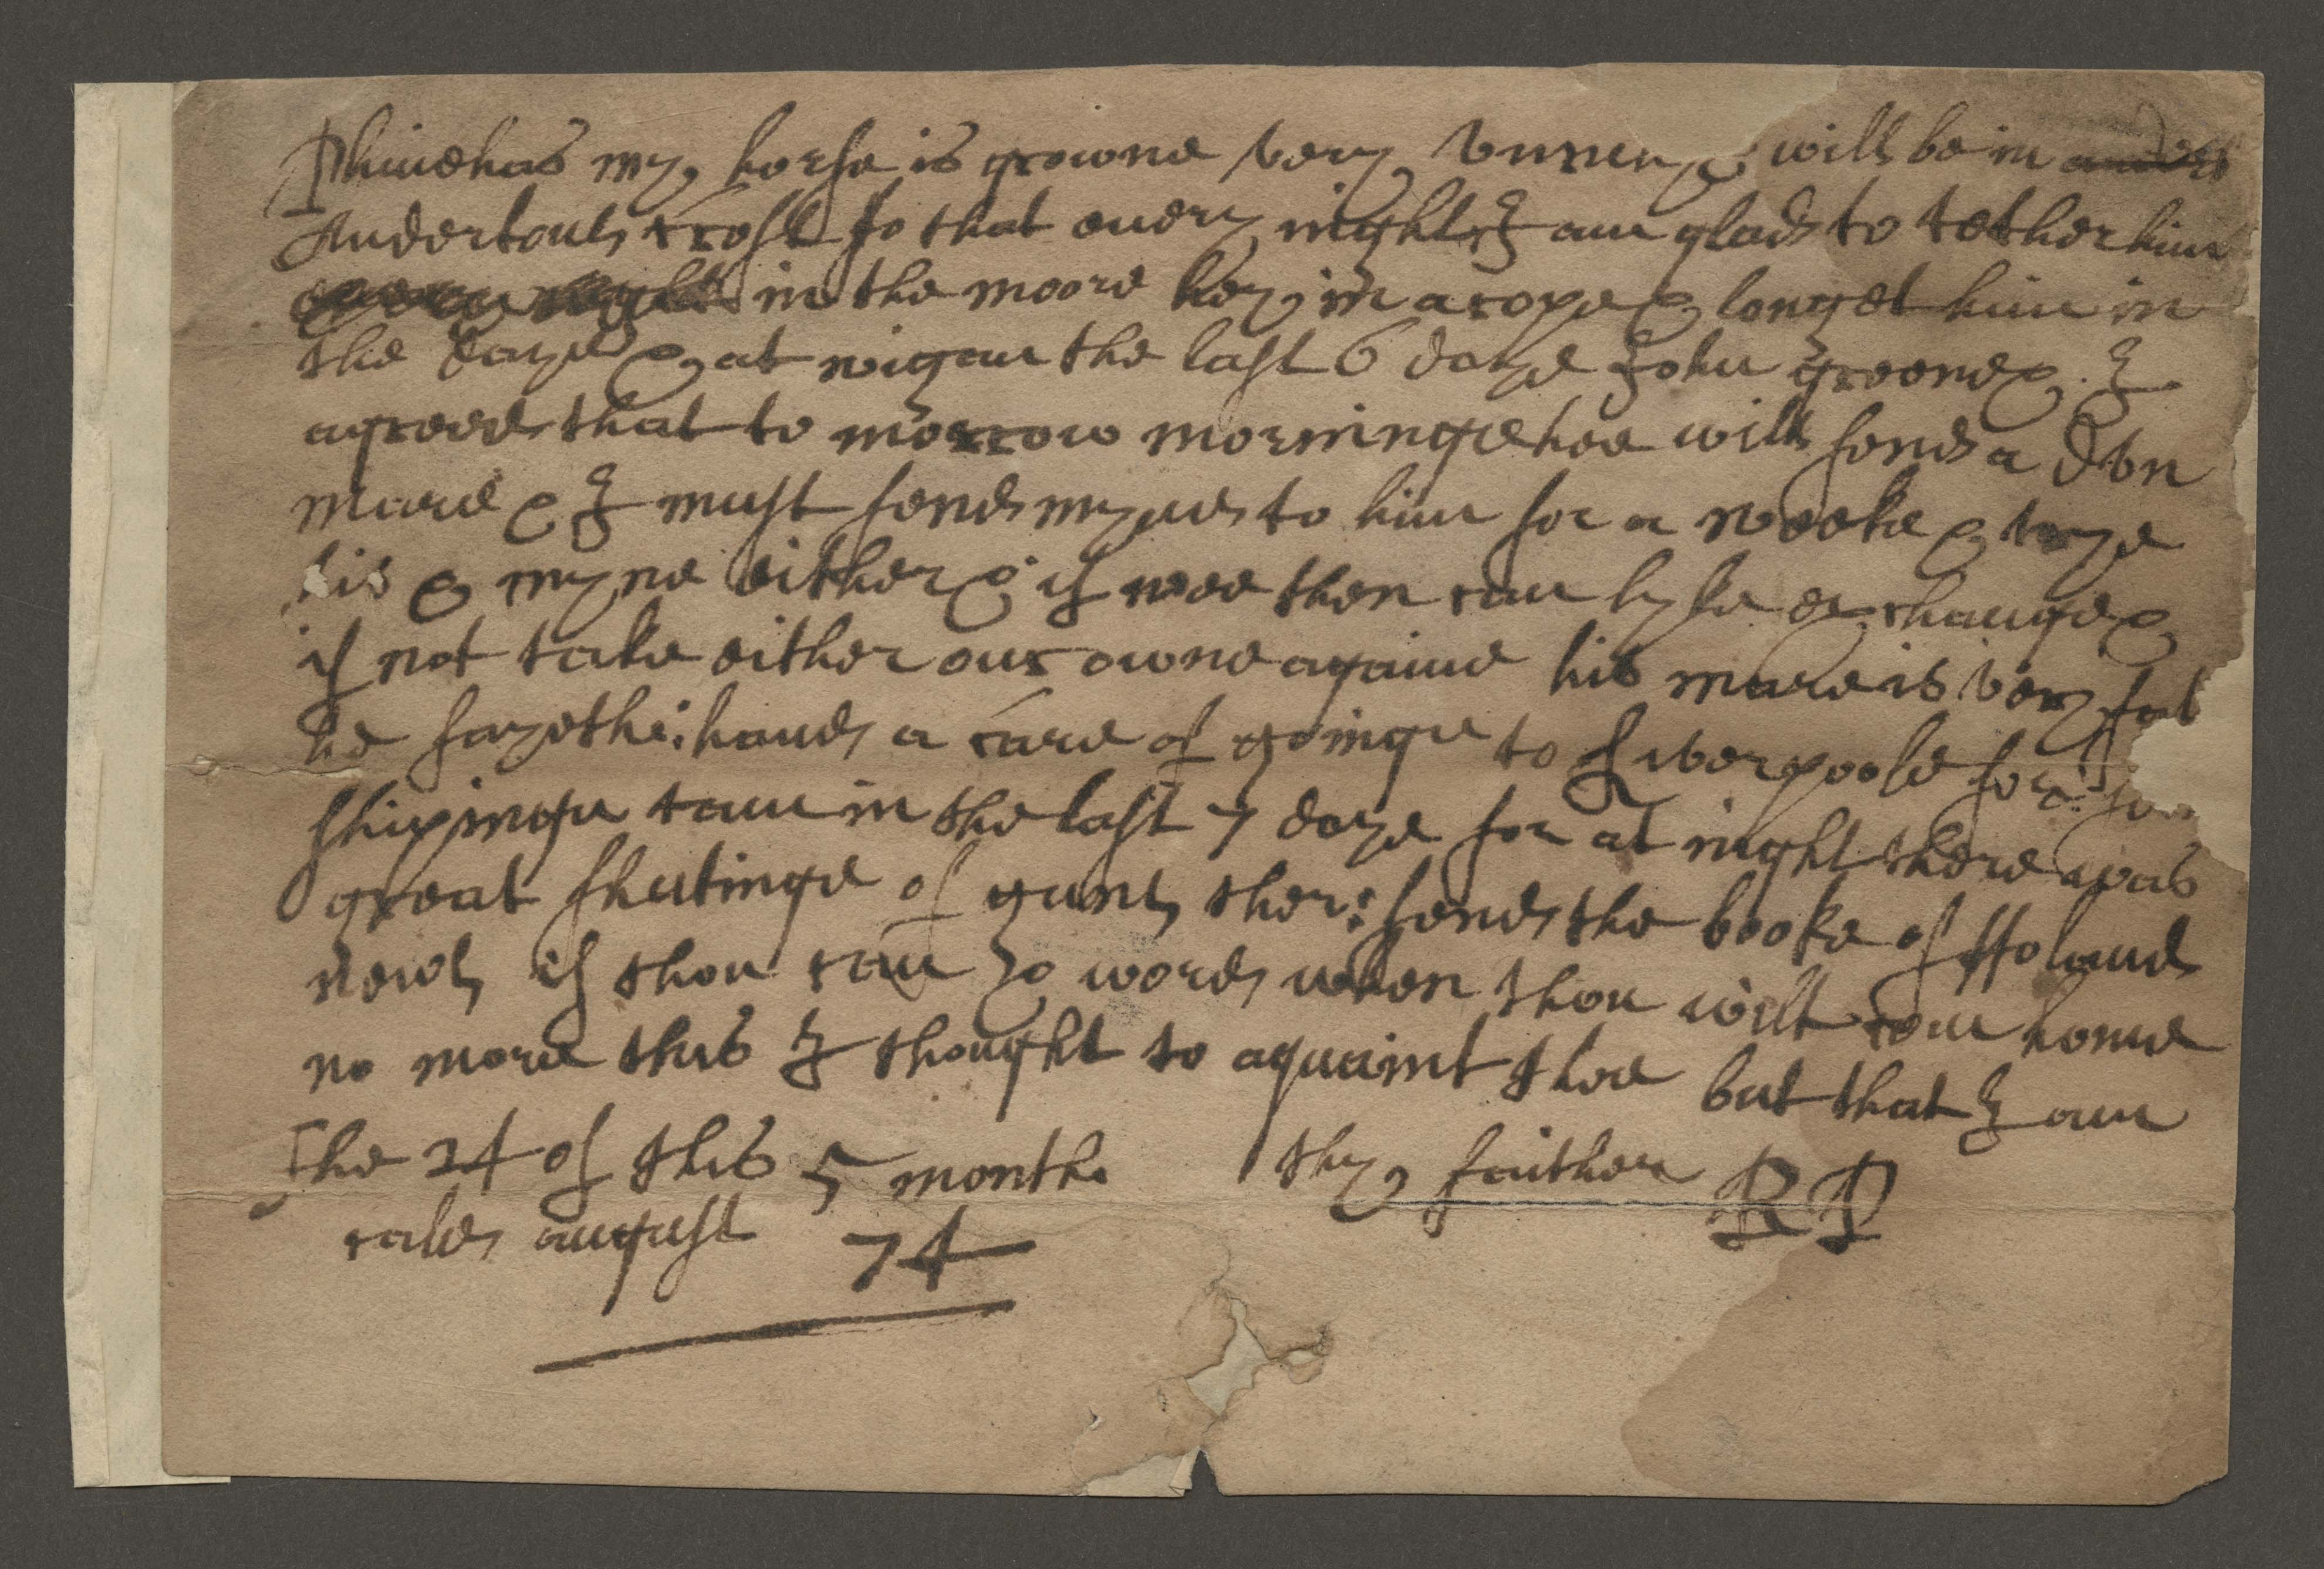 Phinehas my horse is growne very vnruly & will be in
Andertons croft so that euery night I am glad to tether him
in the moore hey in a rope & longel him in
the daye & at wigan the last 6 daye John greene & I
agreed that to morrow morninge hee will send a dvn
mare & I must send my nag to him for a weeke & trye
his & myne either & if wee then can lyke exchange &
if not take either our owne againe his mare is very fat
he sayeth: haue a care of goinge to Liverpoole for:
shipinge cam in the last 7 daye for at night there was
great shutinge of guns ther: send the booke of Holand
news if thou can & word when thou wilt com home
no more this I thought to aquaint thee but that I am
The 24 of this 5 month thy faither RP
caled august 74